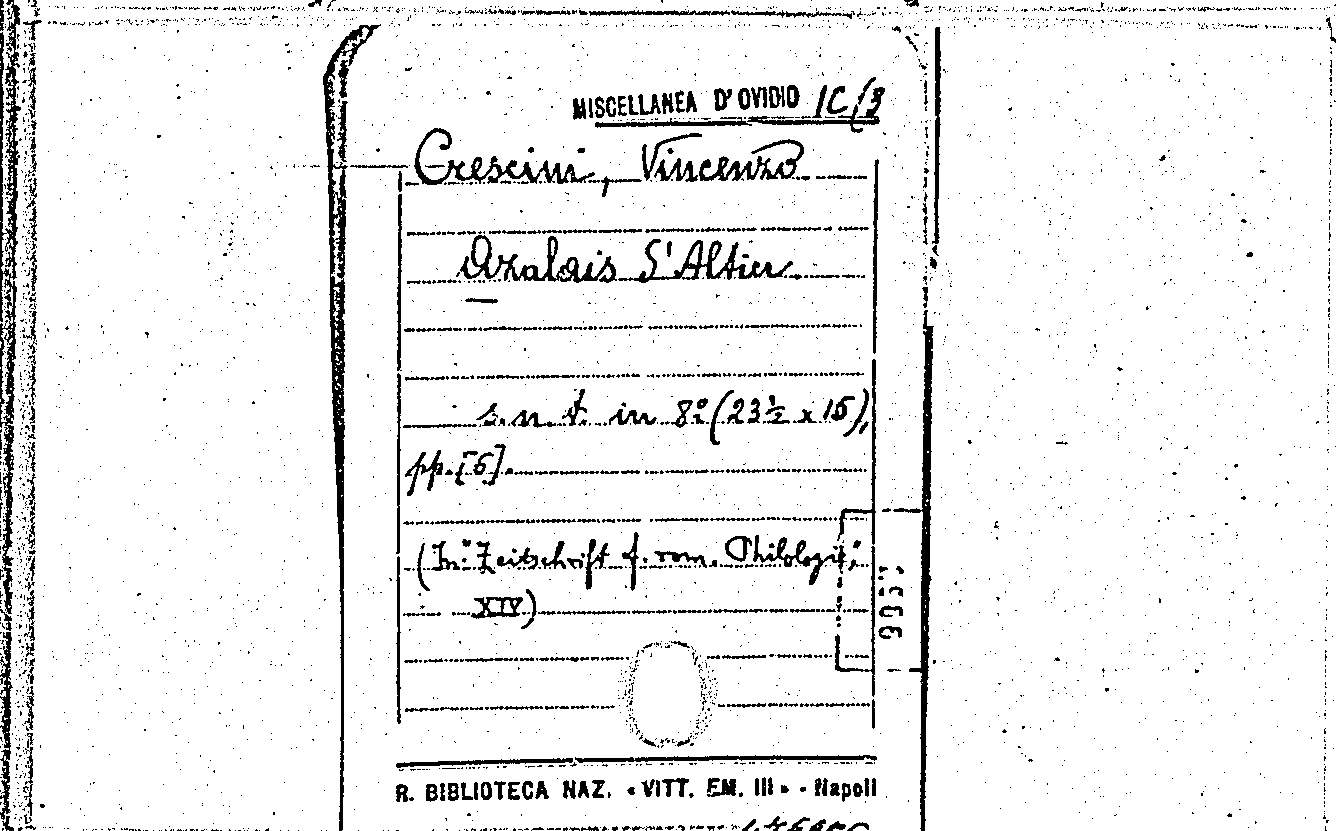 MISCELLANEA D'OVIDIO 1C/3
Crescini, Vincenzo
Azalais d'Altier
s.n.t. in 8º (23½ x 15),
pp. [6].
(In: "Zeitschrift f. rom. Philologie",
XIV)
R. BIBLIOTECA NAZ. «VITT. EM. III» - Napoli